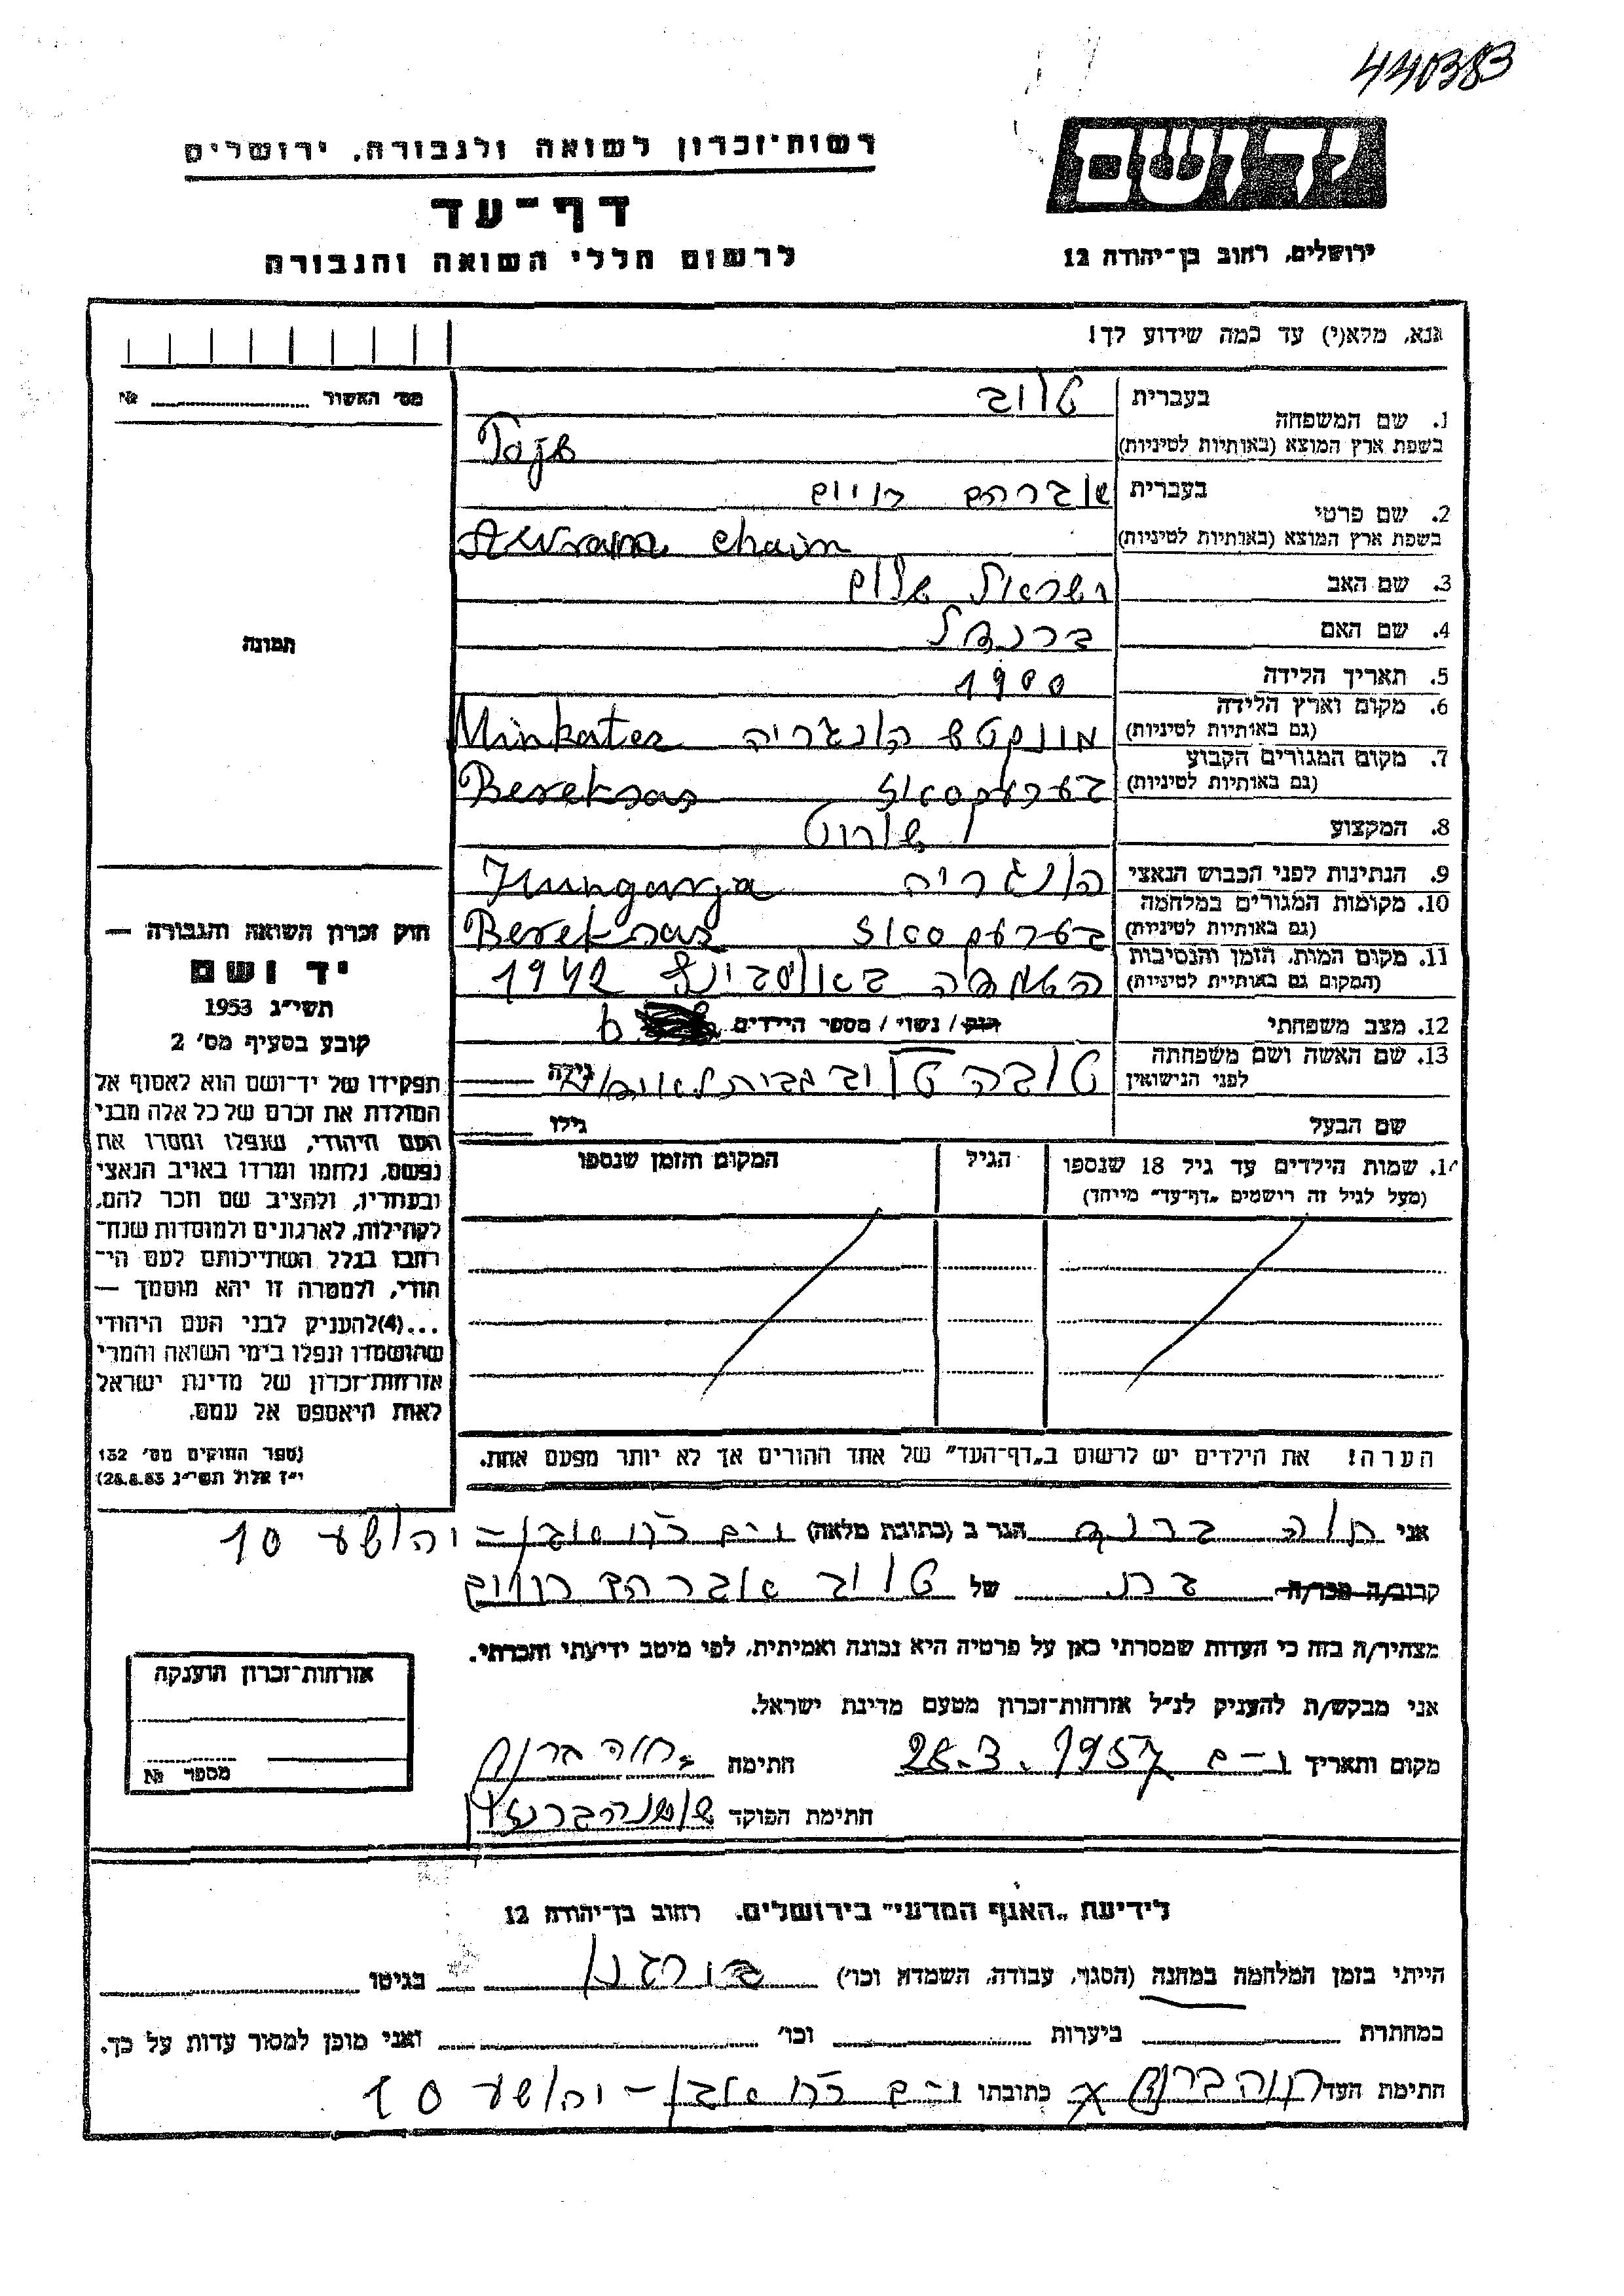 440383
רשות־זכרון לשואה ולגבורה, ירושלים
יד ושם
דף־עד
לרשום חללי השואה והגבורה
ירושלים, רחוב בן־יהודה 12
אנא, מלא(י) עד כמה שידוע לך!
מס׳ האשור № 
בעברית טוב
1. שם המשפחה
בשפת ארץ המוצא (באותיות לטיניות) Tojb
בעברית אברהם חיים
2. שם פרטי
בשפת ארץ המוצא (באותיות לטיניות) Awram chaim
3. שם האב ישראל שלום
4. שם האם ברנדל
תמונה
5. תאריך הלידה 1900
6. מקום וארץ הלידה
(גם באותיות לטיניות) מונקטש הונגריה Minkatez
7. מקום המגורים הקבוע
(גם באותיות לטיניות) בערעקסאז Bereksas
8. המקצוע
9. הנתינות לפני הכבוש הנאצי הונגריה Hungarya
10. מקומות המגורים במלחמה
(גם באותיות לטיניות) בערעקסאז Bereksas
11. מקום המות, הזמן והנסיבות
(המקום גם באותיות לטיניות) 1942
12. מצב משפחתי רוק/ נשוי/ מספר הילדים 6
13. שם האשה ושם משפחתה
לפני הנישואין טובה טוב גילה
שם הבעל גילו
חוק זכרון השואה והגבורה —
יד ושם
תשי״ג 1953
קובע בסעיף מס׳ 2
תפקידו של יד־ושם הוא לאסוף אל
המולדת את זכרם של כל אלה מבני
העם היהודי, שנפלו ומסרו את
נפשם, נלחמו ומרדו באויב הנאצי
ובעוזריו, ולהציב שם וזכר להם,
לקהילות, לארגונים ולמוסדות שנח־
רבו בגלל השתייכותם לעם הי־
הודי, ולמטרה זו יהא מוסמך —
...(4)להעניק לבני העם היהודי
שהושמדו ונפלו בימי השואה והמרי
אזרחות־זכרון של מדינת ישראל
לאות היאספם אל עמם.
(ספר החוקים מס׳ 132
י״ז אלול תשי״ג 28.8.53)
14. שמות הילדים עד גיל 18 שנספו הגיל המקום והזמן שנספו
(מעל לגיל זה רושמים „דף־עד״ מיוחד)
הערה! את הילדים יש לרשום ב„דף־העד״ של אחד ההורים אך לא יותר מפעם אחת.
אני חוה ברוך הגר ב (כתובת מלאה) י-ם אבן־יהושע 10
קרוב/ה מכר/ה בת של טוב אברהם חיים
מצהיר/ה בזה כי העדות שמסרתי כאן על פרטיה היא נכונה ואמיתית, לפי מיטב ידיעתי והכרתי.
אני מבקש/ת להעניק לנ״ל אזרחות־זכרון מטעם מדינת ישראל.
מקום ותאריך י-ם 28.3.1957 חתימה חוה ברוך
חתימת הפוקד
אזרחות־זכרון הוענקה
מספר №
לידיעת „האגף המדעי״ בירושלים, רחוב בן־יהודה 12
הייתי בזמן המלחמה במחנה (הסגר, עבודה, השמדה וכו׳) בורגנו בגיטו
במחתרת ביערות וכו׳ ואני מוכן למסור עדות על כך.
חתימת העד חוה ברוך כתובתו י-ם אבן־יהושע 10